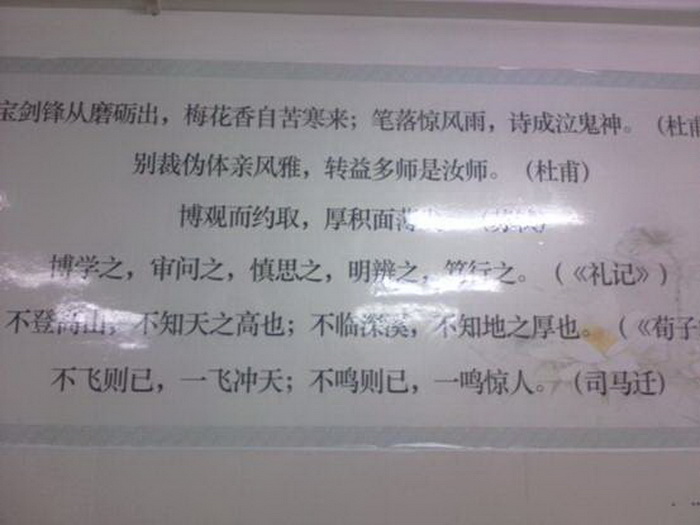 宝剑锋从磨砺出，梅花香自苦寒来；笔落惊风雨，诗成泣鬼神。（杜甫
别裁伪体亲风雅，转益多师是汝师。（杜甫）
博观而约取，厚积面薄
博学之，审问之，慎思之，明辨之，笃行之。（《礼记》）
不登高山，不知天之高也；不临深溪，不知地之厚也。（《荀子
不飞则已，一飞冲天；不鸣则已，一鸣惊人。（司马迁）